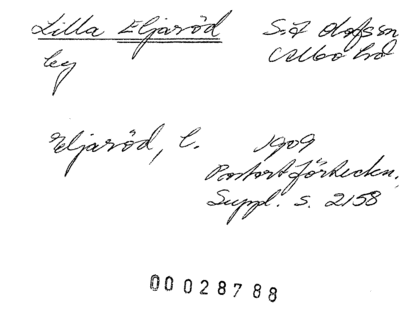 Lilla Eljaröd
by
S. Z Olofsson
Albo hd
Eljaröd, C. 1909
Postortförteckn.,
Suppl. s. 2158
00028788